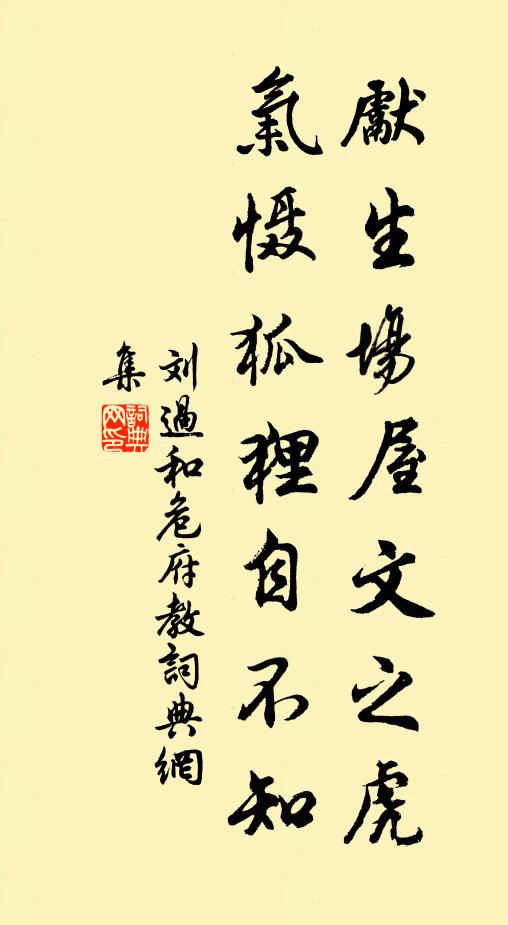 獻生場屋文之虎
氣慑狐狸自不知
刘過和危府教詞典網
集
詞典网印